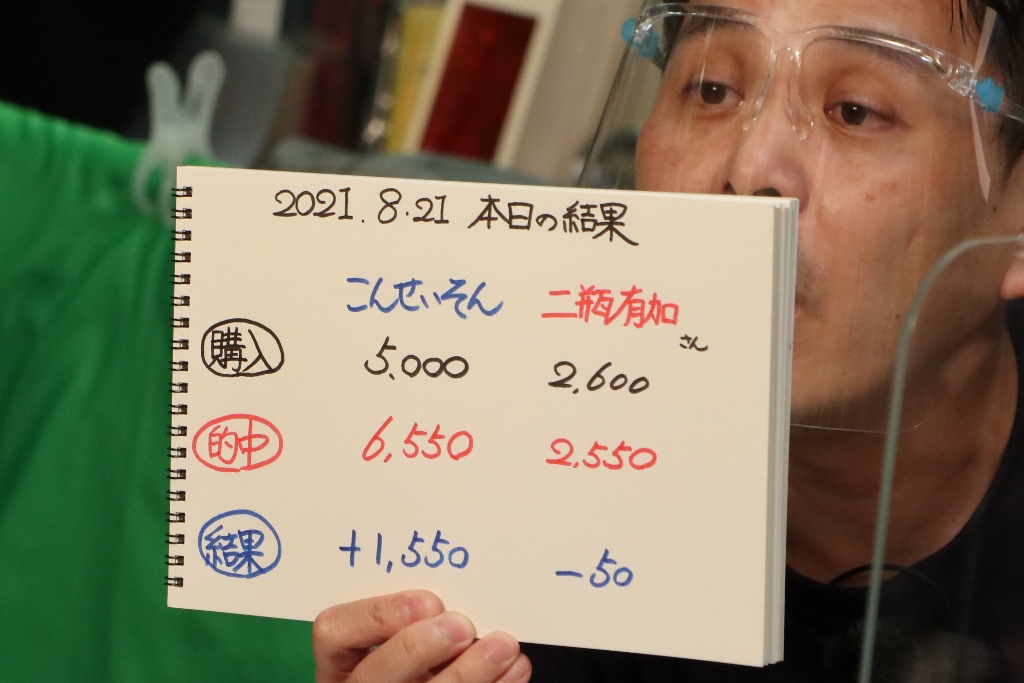 2021.8.21 本日の結果
こんせいそん 二瓶有加さん
購入 5,000 2,600
的中 6,550 2,550
結果 +1,550 -50